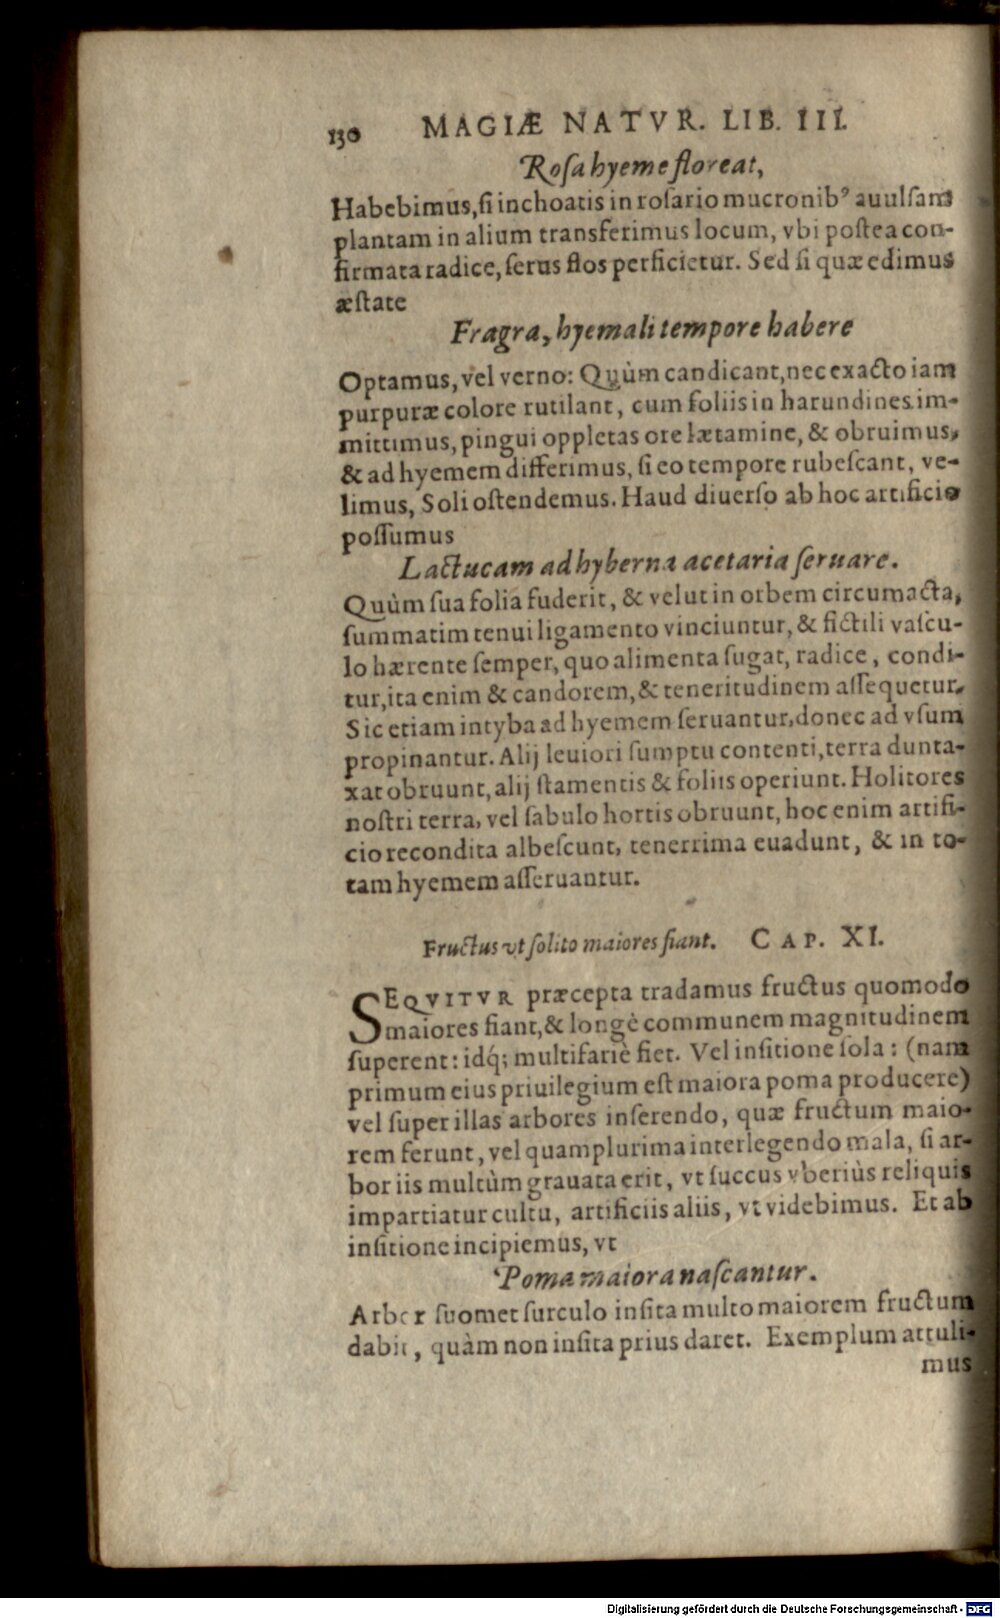 130 MAGIÆ NATVR. LIB. III.
Roſa hyeme floreat,
Habebimus, ſi inchoatis in roſario mucronibꝰ auulſam
plantam in alium transferimus locum, vbi poſtea con-
firmata radice, ſerus flos perficietur. Sed ſi quæ edimus
æſtate
Fragra, hyemali tempore habere
Optamus, vel verno: Quùm candicant, nec exacto iam
purpuræ colore rutilant, cum foliis in harundines im-
mittimus, pingui oppletas ore lætamine, & obruimus,
& ad hyemem differimus, ſi eo tempore rubeſcant, ve-
limus, Soli oſtendemus. Haud diuerſo ab hoc artificio
poſſumus
Lactucam ad hyberna acetaria ſeruare.
Quùm ſua folia fuderit, & velut in orbem circumacta,
ſummatim tenui ligamento vinciuntur, & fictili vaſcu-
lo hærente ſemper, quo alimenta ſugat, radice, condi-
tur, ita enim & candorem, & teneritudinem aſſequetur.
Sic etiam intyba ad hyemem ſeruantur, donec ad vſum
propinantur. Alij leuiori ſumptu contenti, terra dunta-
xat obruunt, alij ſtamentis & foliis operiunt. Holitores
noſtri terra, vel ſabulo hortis obruunt, hoc enim artifi-
cio recondita albeſcunt, tenerrima euadunt, & in to-
tam hyemem aſſeruantur.
Fructus vt ſolito maiores fiant. CAP. XI.
SEQVITVR præcepta tradamus fructus quomodo
maiores fiant, & longè communem magnitudinem
ſuperent: idq́; multifariè fiet. Vel inſitione ſola: (nam
primum eius priuilegium eſt maiora poma producere)
vel ſuper illas arbores inſerendo, quæ fructum maio-
rem ferunt, vel quamplurima interlegendo mala, ſi ar-
bor iis multùm grauata erit, vt ſuccus vberiùs reliquis
impartiatur cultu, artificiis aliis, vt videbimus. Et ab
inſitione incipiemus, vt
Poma maiora naſcantur.
Arbor ſuomet ſurculo inſita multo maiorem fructum
dabit, quàm non inſita prius daret. Exemplum attuli-
mus
Digitalisierung gefördert durch die Deutsche Forschungsgemeinschaft - DFG